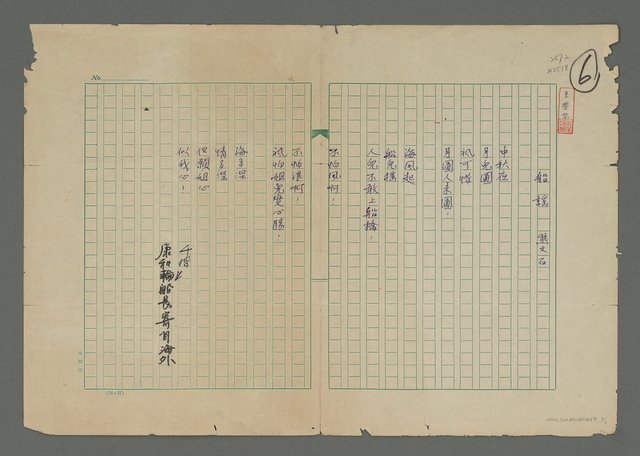 6
No.
船謠　熊文石
中秋夜
月兒圓
祇可惜
月圓人未圓！
海風起
船兒搖
人兒不敢上船橋！
不怕風啊！
不怕浪啊！
祇怕姐兒變心腸！
海多深
情多深
但願姐心
似我心！
康和輪船長寄自海外